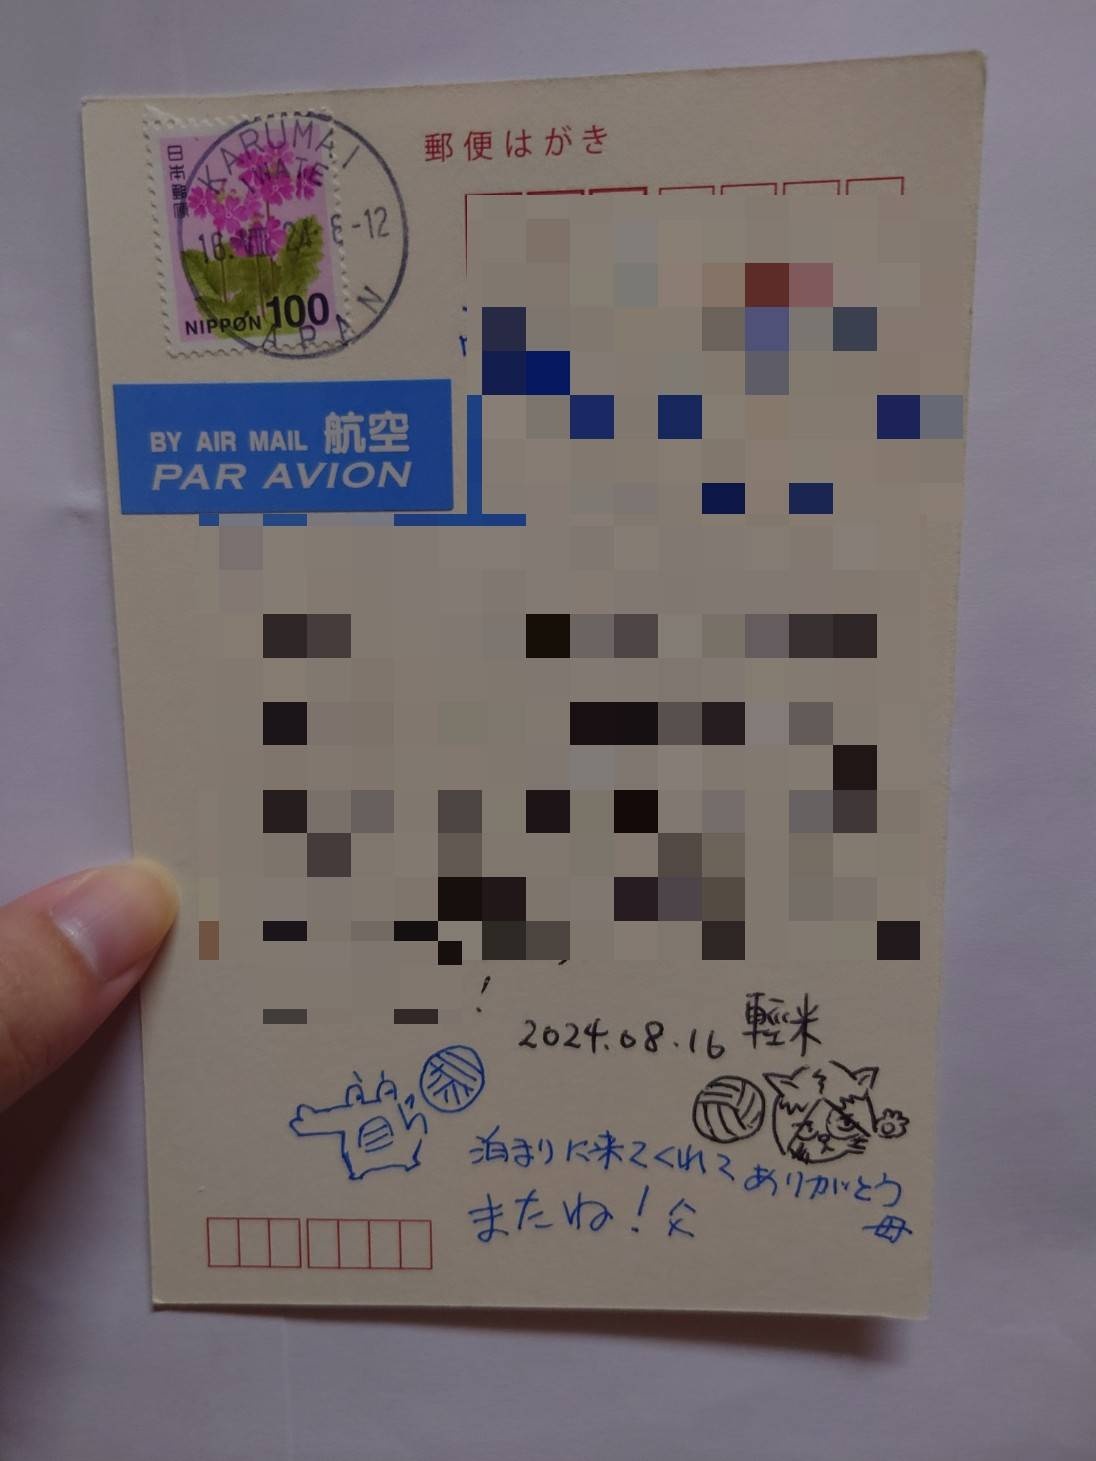 郵便はがき
日本郵便
KARUMAI
IWATE
16.VIII.24 8-12
JAPAN
NIPPON 100
BY AIR MAIL 航空
PAR AVION
!
2024.08.16 輕米
泊まりに来てくれてありがとう
またね!父
母